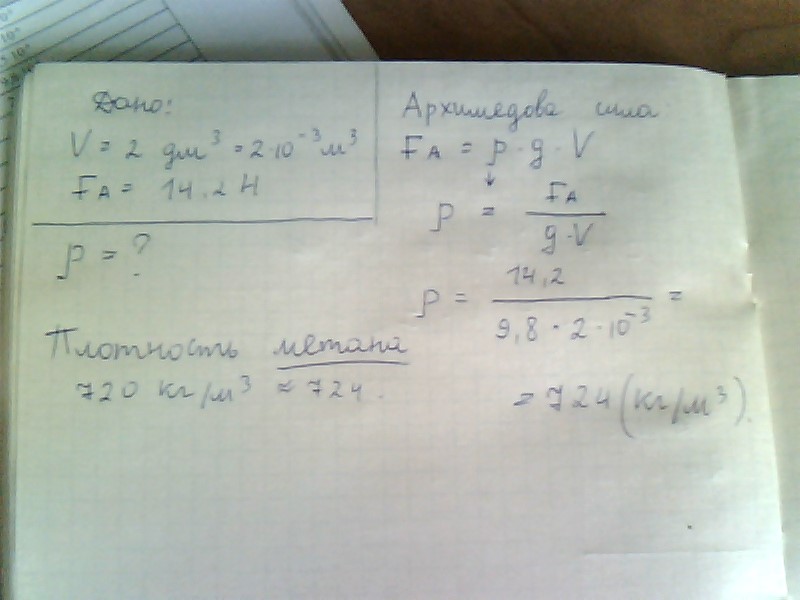 Дано:
V = 2 дм³ = 2·10⁻³ м³
FА = 14,2 Н
ρ = ?
Плотность метана
720 кг/м³ ≈ 724.
Архимедова сила
FА = ρ·g·V
↓
ρ = FА / g·V
ρ = 14,2 / 9,8 · 2 · 10⁻³ =
= 724 (кг/м³).